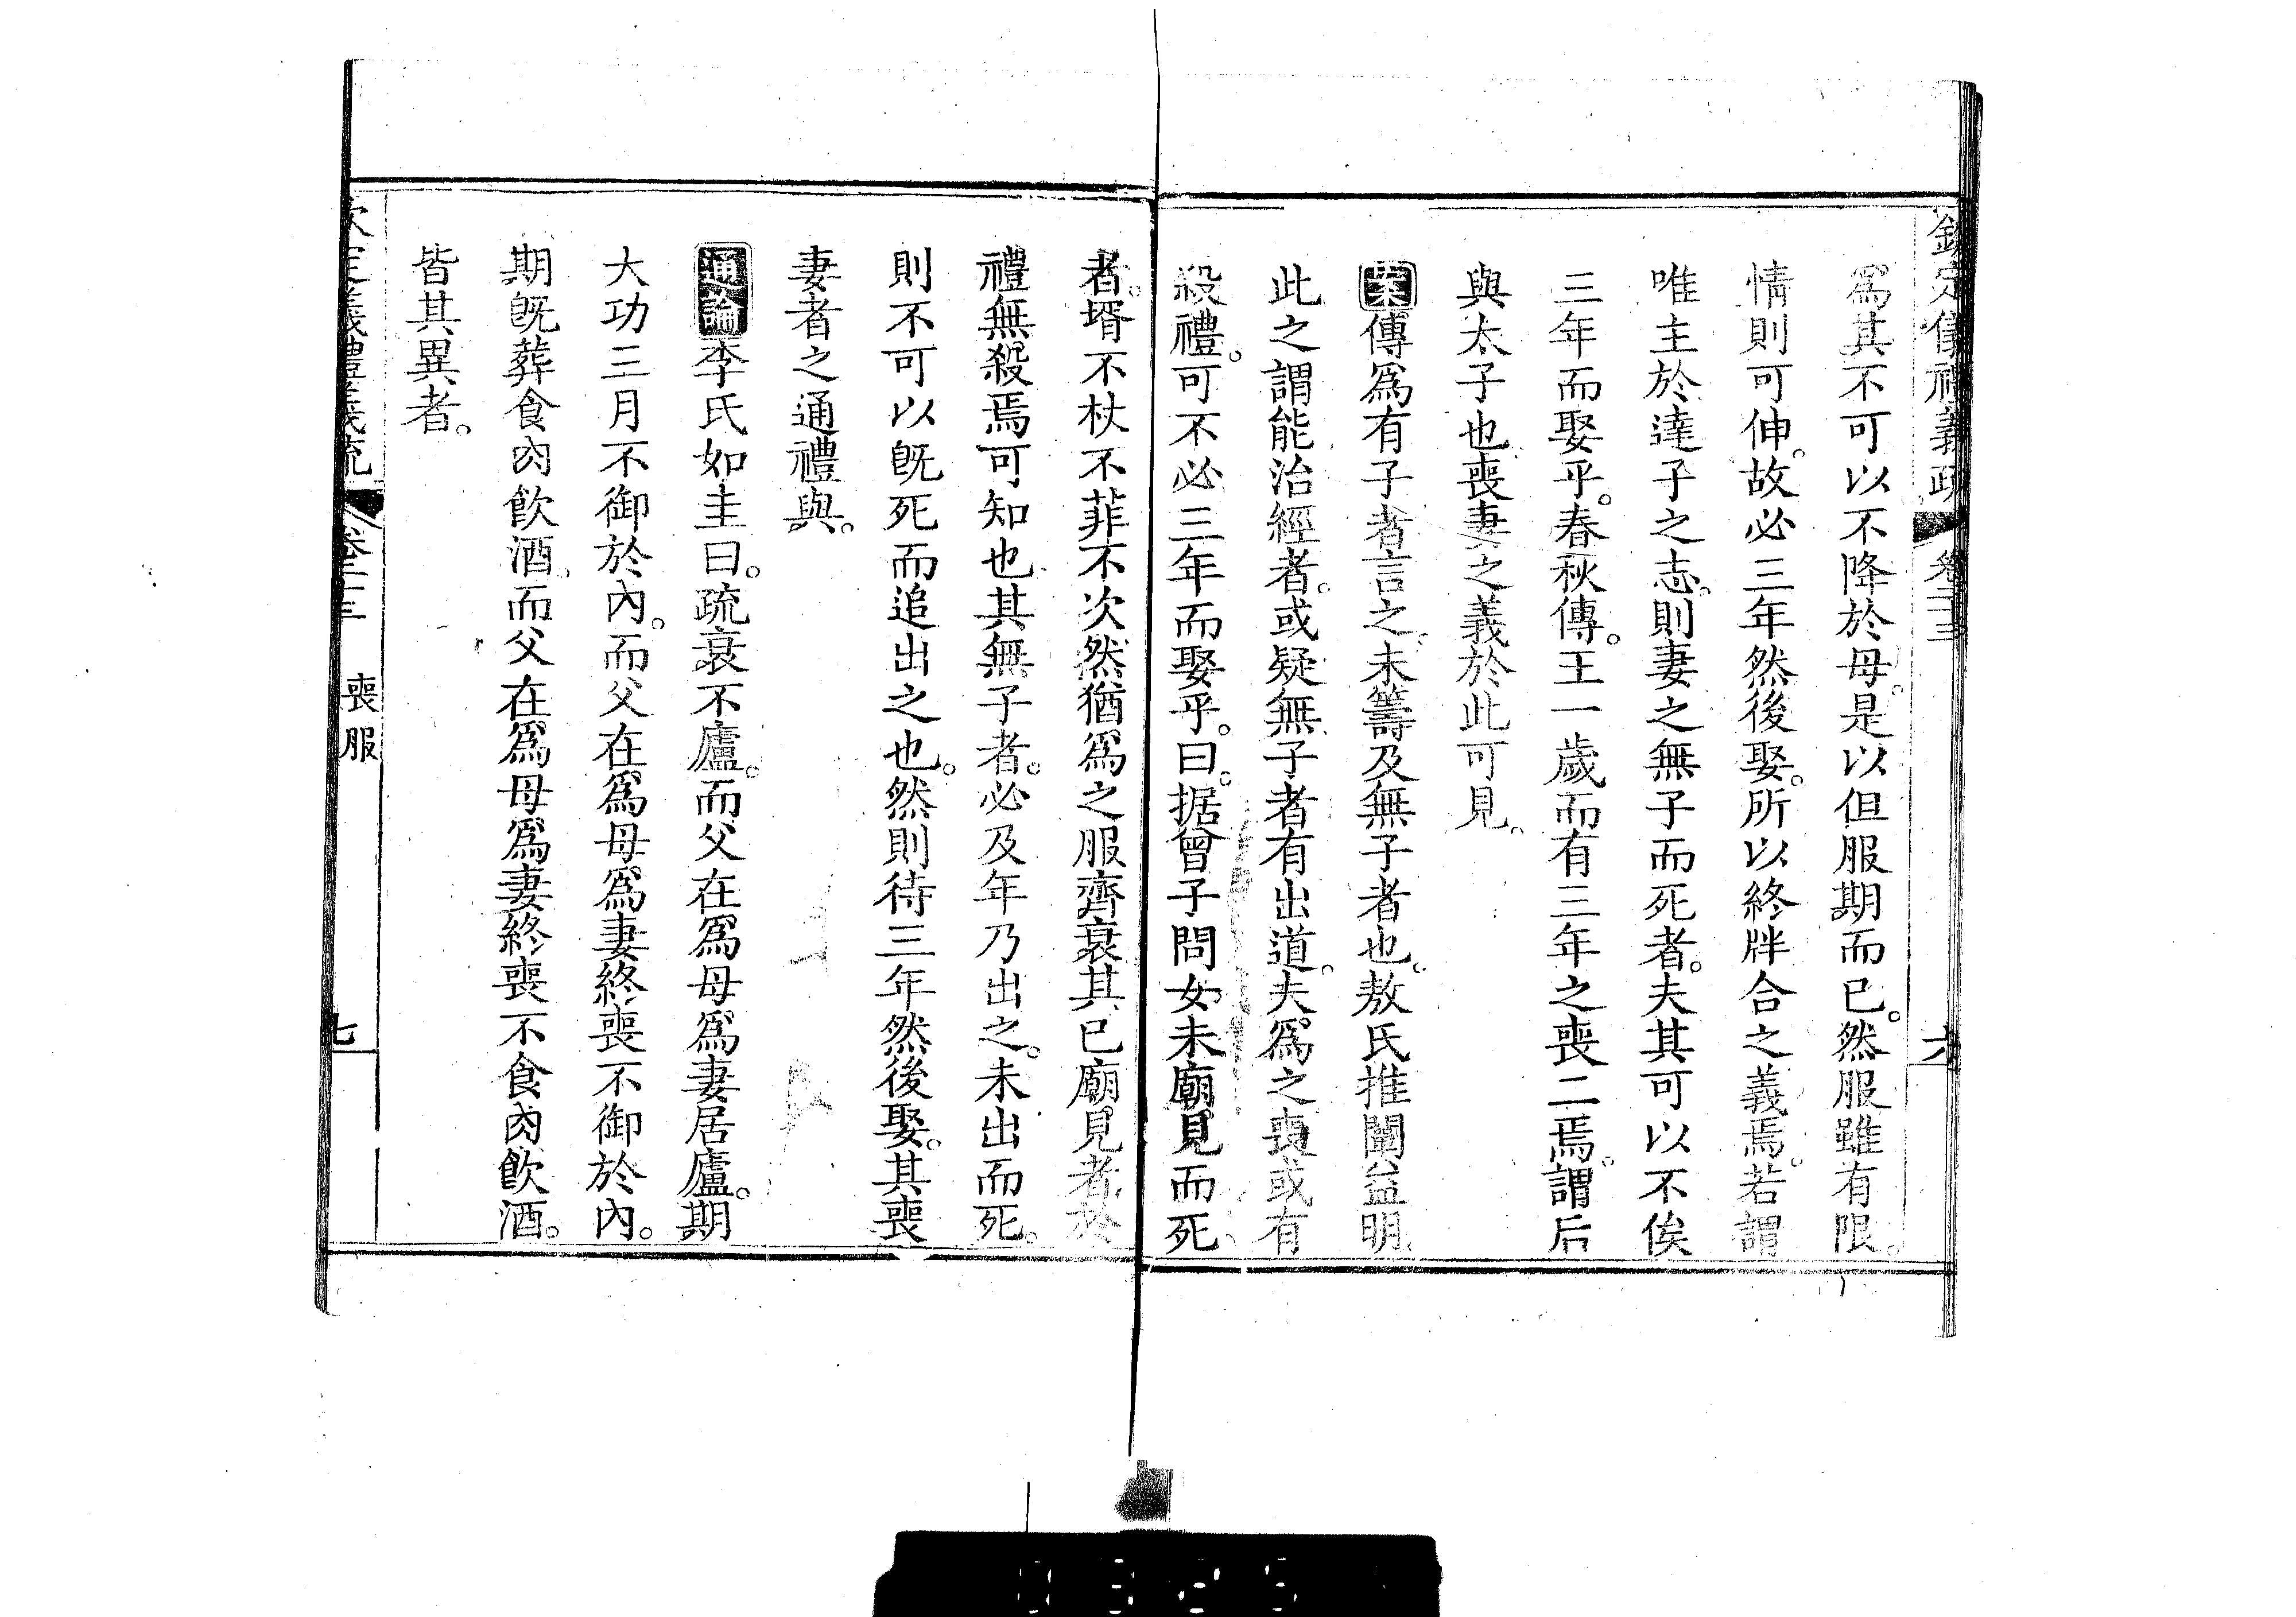 欽定儀禮義疏 卷二十三 六
爲其不可以不降於母。是以但服期而已。然服雖有限。
情則可伸。故必三年然後娶。所以終牉合之義焉。若謂
唯主於達子之志。則妻之無子而死者。夫其可以不俟
三年而娶乎。春秋傳。王一歲而有三年之喪二焉。謂后
與太子也喪妻之義於此可見。
案傳爲有子者言之。未籌及無子者也。敖氏推闡益明。
此之謂能治經者。或疑無子者有出道。夫爲之喪或有
殺禮。可不必三年而娶乎。曰。据曾子問女未廟見而死
者。壻不杖不菲不次然猶爲之服齊衰其已廟見者於
禮無殺焉可知也其無子者。必及年乃出之。未出而死。
則不可以旣死而追出之也。然則待三年然後娶。其喪
妻者之通禮與。
通論李氏如圭曰。疏衰不廬。而父在爲母爲妻居廬。期
大功三月不御於內。而父在爲母爲妻終喪不御於內。
期旣葬食肉飮酒。而父在爲母爲妻終喪不食肉飮酒。
皆其異者。
欽定義禮義疏 卷二十三 喪服 七